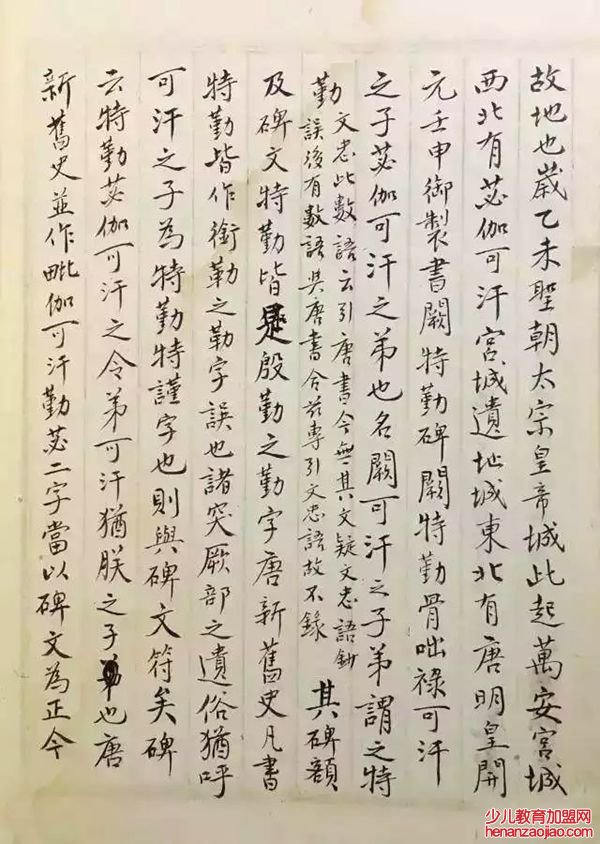 故地也歲乙未聖朝太宗皇帝城此起萬安宮城
西北有苾伽可汗宮城遺地城東北有唐明皇開
元壬申御製書闕特勤碑闕特勤骨咄祿可汗
之子苾伽可汗之弟也名闕可汗之子弟謂之特
勤
文忠此數語云引唐書今無其文疑文忠語鈔
誤後有數語與唐書合茲專引文忠語故不錄
其碑額
及碑文特勤皆是殷勤之勤字唐新舊史凡書
特勤皆作銜勒之勒字誤也諸突厥部之遺俗猶呼
可汗之子為特勤特謹字也則與碑文符矣碑
云特勤苾伽可汗之令弟可汗猶朕之子弟也唐
新舊史並作毗伽可汗勤苾二字當以碑文為正今
少儿教育加盟网
henanzaojiao.com